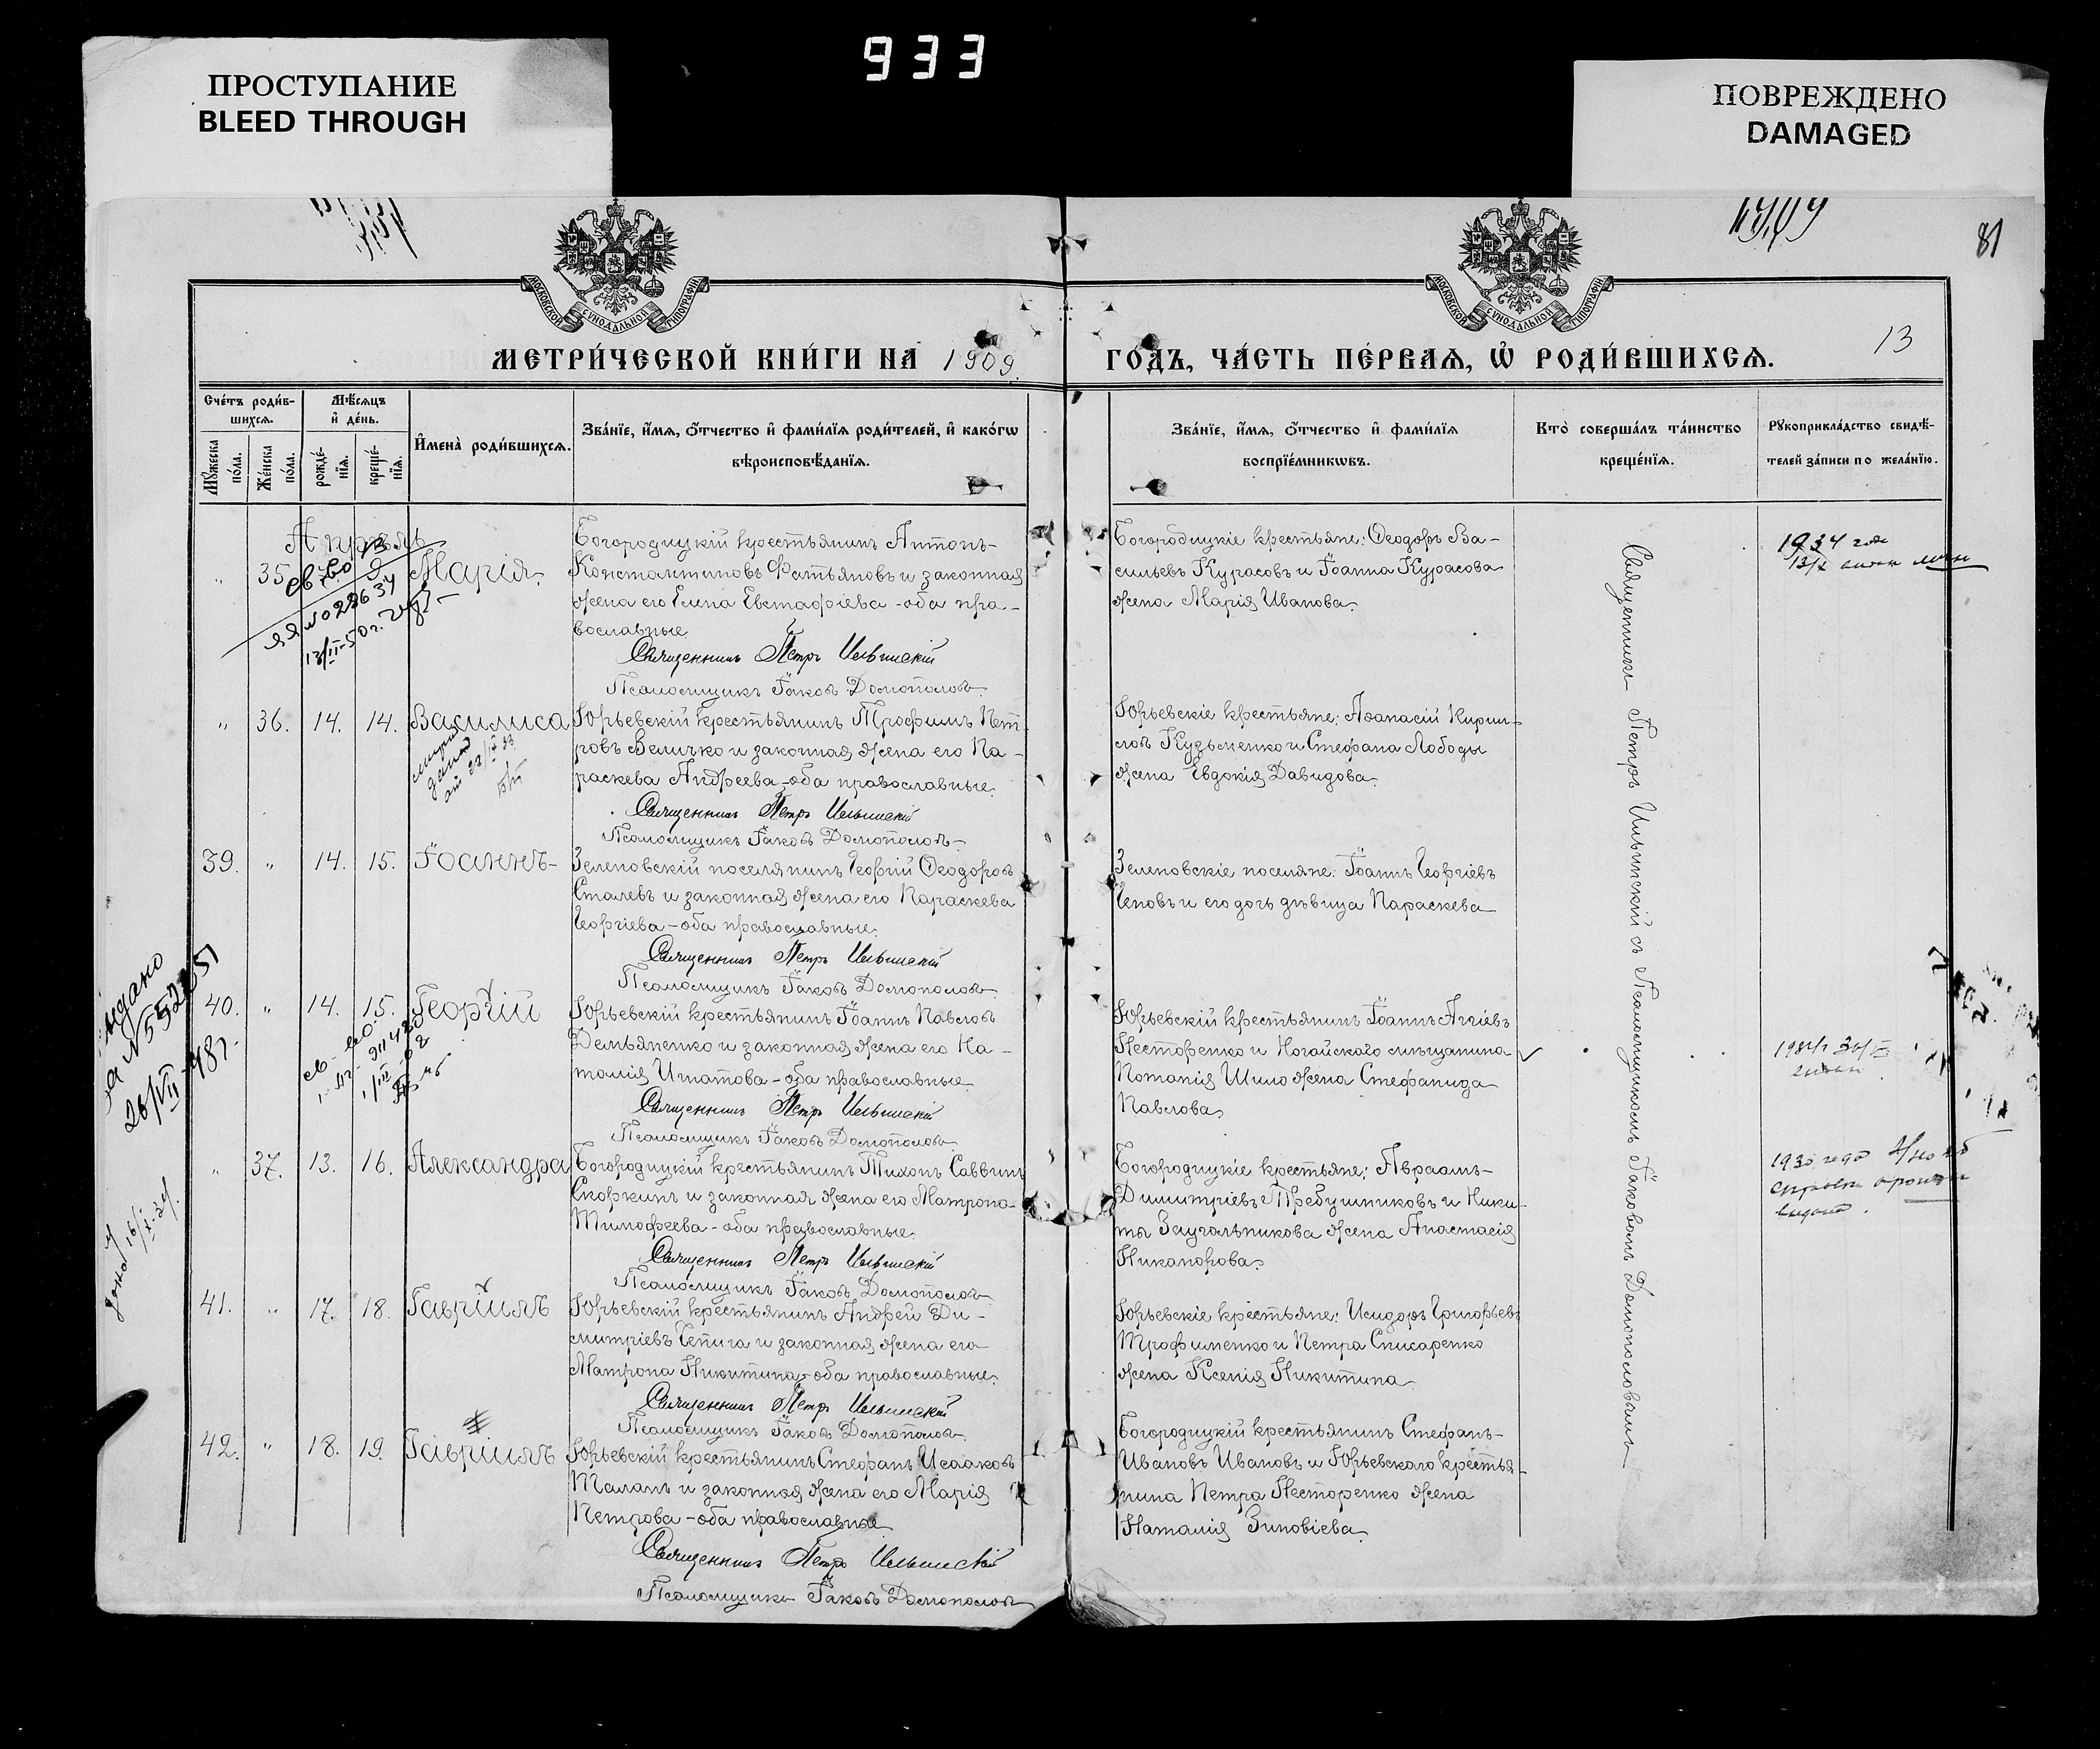 933
ПРОСТУПАНИЕ
BLEED THROUGH
ПОВРЕЖДЕНО
DAMAGED
81
МОСКОВСКОЙ СУНОДАЛЬНОЙ ТИПОГРАФІИ
МОСКОВСКОЙ СУНОДАЛЬНОЙ ТИПОГРАФІИ
МЕТРИ́ЧЕСКОЙ КНИ́ГИ НА 1909.
ГО́ДЪ, ЧА́СТЬ ПЕ́РВАЯ, Ѡ РОДИ́ВШИХСЯ.
13
Сче́тъ роди́в-
шихся.
Мꙋ́жеска по́ла.
Же́нска по́ла.
Мѣ́сяцъ
и҆ де́нь.
рожде́-
нїя.
креще́-
нїя.
И҆мена̀ роди́вшихся.
Зва́нїе, и҆́мя, ѻ҆́тчество и҆ фами́лїя роди́телей, и҆ како́гѡ
вѣроисповѣ́данїя.
Зва́нїе, и҆́мя, ѻ҆́тчество и҆ фами́лїя
воспрїе́мникѡвъ.
Кто̀ соверша́лъ та́инство
креще́нїя.
Рꙋкоприкла́дство свидѣ́-
телей за́писи по жела́нїю.
Апрѣль
„ 35 9 Марія.
св-во
ЯЯ №028634
13/II-50г.
Богородицкій крестьянинъ Антонъ
Константиновъ Фатьяновъ и законная
жена его Елена Евстафіева - оба пра-
вославные
Священникъ Петръ Ильинскій
Псаломщикъ Іаковъ Домонополовъ
Богородицкіе крестьяне: Ѳеодоръ Ва-
сильевъ Курасовъ и Іоанна Курасова
жена Марія Иванова.
1934 года
13/X
„ 36. 14. 14. Василиса
Юрьевскій крестьянинъ Трофимъ Пет-
ровъ Величко и законная жена его Па-
раскева Андреева - оба православные.
Священникъ Петръ Ильинскій
Псаломщикъ Іаковъ Домонополовъ
Юрьевскіе крестьяне: Аѳанасій Кирил-
ловъ Кузьменко и Стефана Лободы
жена Евдокія Давидова.
39. „ 14. 15. Іоаннъ
Зеленовскій поселянинъ Георгій Ѳеодоровъ
Сталевъ и законная жена его Параскева
Георгіева - оба православные.
Священникъ Петръ Ильинскій
Псаломщикъ Іаковъ Домонополовъ
Зеленовскіе поселяне: Іоаннъ Георгіевъ
Ченовъ и его дочь дѣвица Параскева
40. „ 14. 15. Георгій
26/VII-48г.
Юрьевскій крестьянинъ Іоаннъ Павловъ
Демьяненко и законная жена его На-
талія Игнатова - оба православные.
Священникъ Петръ Ильинскій
Псаломщикъ Іаковъ Домонополовъ
Юрьевскій крестьянинъ Іоаннъ Аггіевъ
Несторенко и Ногайскаго мѣщанина
Потапія Шило жена Стефанида
Павлова.
„ 37. 13. 16. Александра
Богородицкій крестьянинъ Тихонъ Саввинъ
Скоркинъ и законная жена его Матрона
Тимофеева - оба православные.
Священникъ Петръ Ильинскій
Псаломщикъ Іаковъ Домонополовъ
Богородицкіе крестьяне: Авраамъ
Димитріевъ Требушниковъ и Ники-
ты Заугольникова жена Анастасія
Никанорова.
41. „ 17. 18. Гавріилъ
Юрьевскій крестьянинъ Андрей Ди-
митріевъ Чепига и законная жена его
Матрона Никитина - оба православные.
Священникъ Петръ Ильинскій
Псаломщикъ Іаковъ Домонополовъ
Юрьевскіе крестьяне: Исидоръ Григорьевъ
Трофименко и Петра Списаренко
жена Ксенія Никитина
42. „ 18. 19. Гавріилъ
Юрьевскій крестьянинъ Стефанъ Исааковъ
Таланъ и законная жена его Марія
Петрова - оба православные
Священникъ Петръ Ильинскій
Псаломщикъ Іаковъ Домонополовъ
Богородицкій крестьянинъ Стефанъ
Ивановъ Ивановъ и Юрьевскаго крестья-
нина Петра Несторенко жена
Наталія Зиновіева
Священникъ Петръ Ильинскій съ Псаломщикомъ Іаковомъ Домонополовымъ